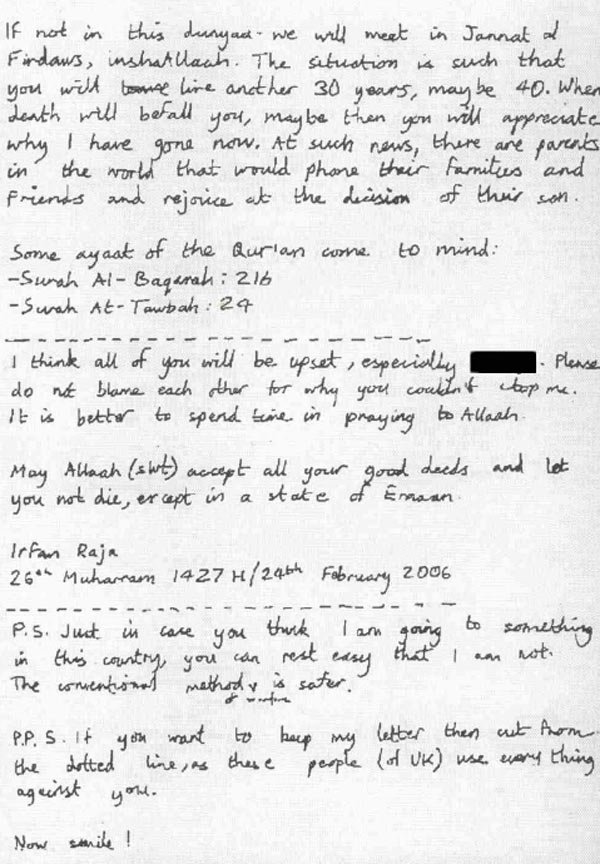 If not in this dunyaa - we will meet in Jannat al
Firdaws, inshaAllaah. The situation is such that
you will live another 30 years, maybe 40. When
death will befall you, maybe then you will appreciate
why I have gone now. At such news, there are parents
in the world that would phone their families and
friends and rejoice at the decision of their son.
Some ayaat of the Qur'an come to mind:
-Surah Al-Baqarah: 216
-Surah At-Tawbah: 24
I think all of you will be upset, especially . Please
do not blame each other for why you couldn't stop me.
It is better to spend time in praying to Allaah.
May Allaah (swt) accept all your good deeds and let
you not die, except in a state of Emaan.
Irfan Raja
26th Muharram 1427 H/24th February 2006
P.S. Just in case you think I am going to something
in this country, you can rest easy that I am not.
The conventional method is safer.
of warfare
P.P.S. If you want to keep my letter then cut from
the dotted line, as these people (of UK) use every thing
against you.
Now smile!